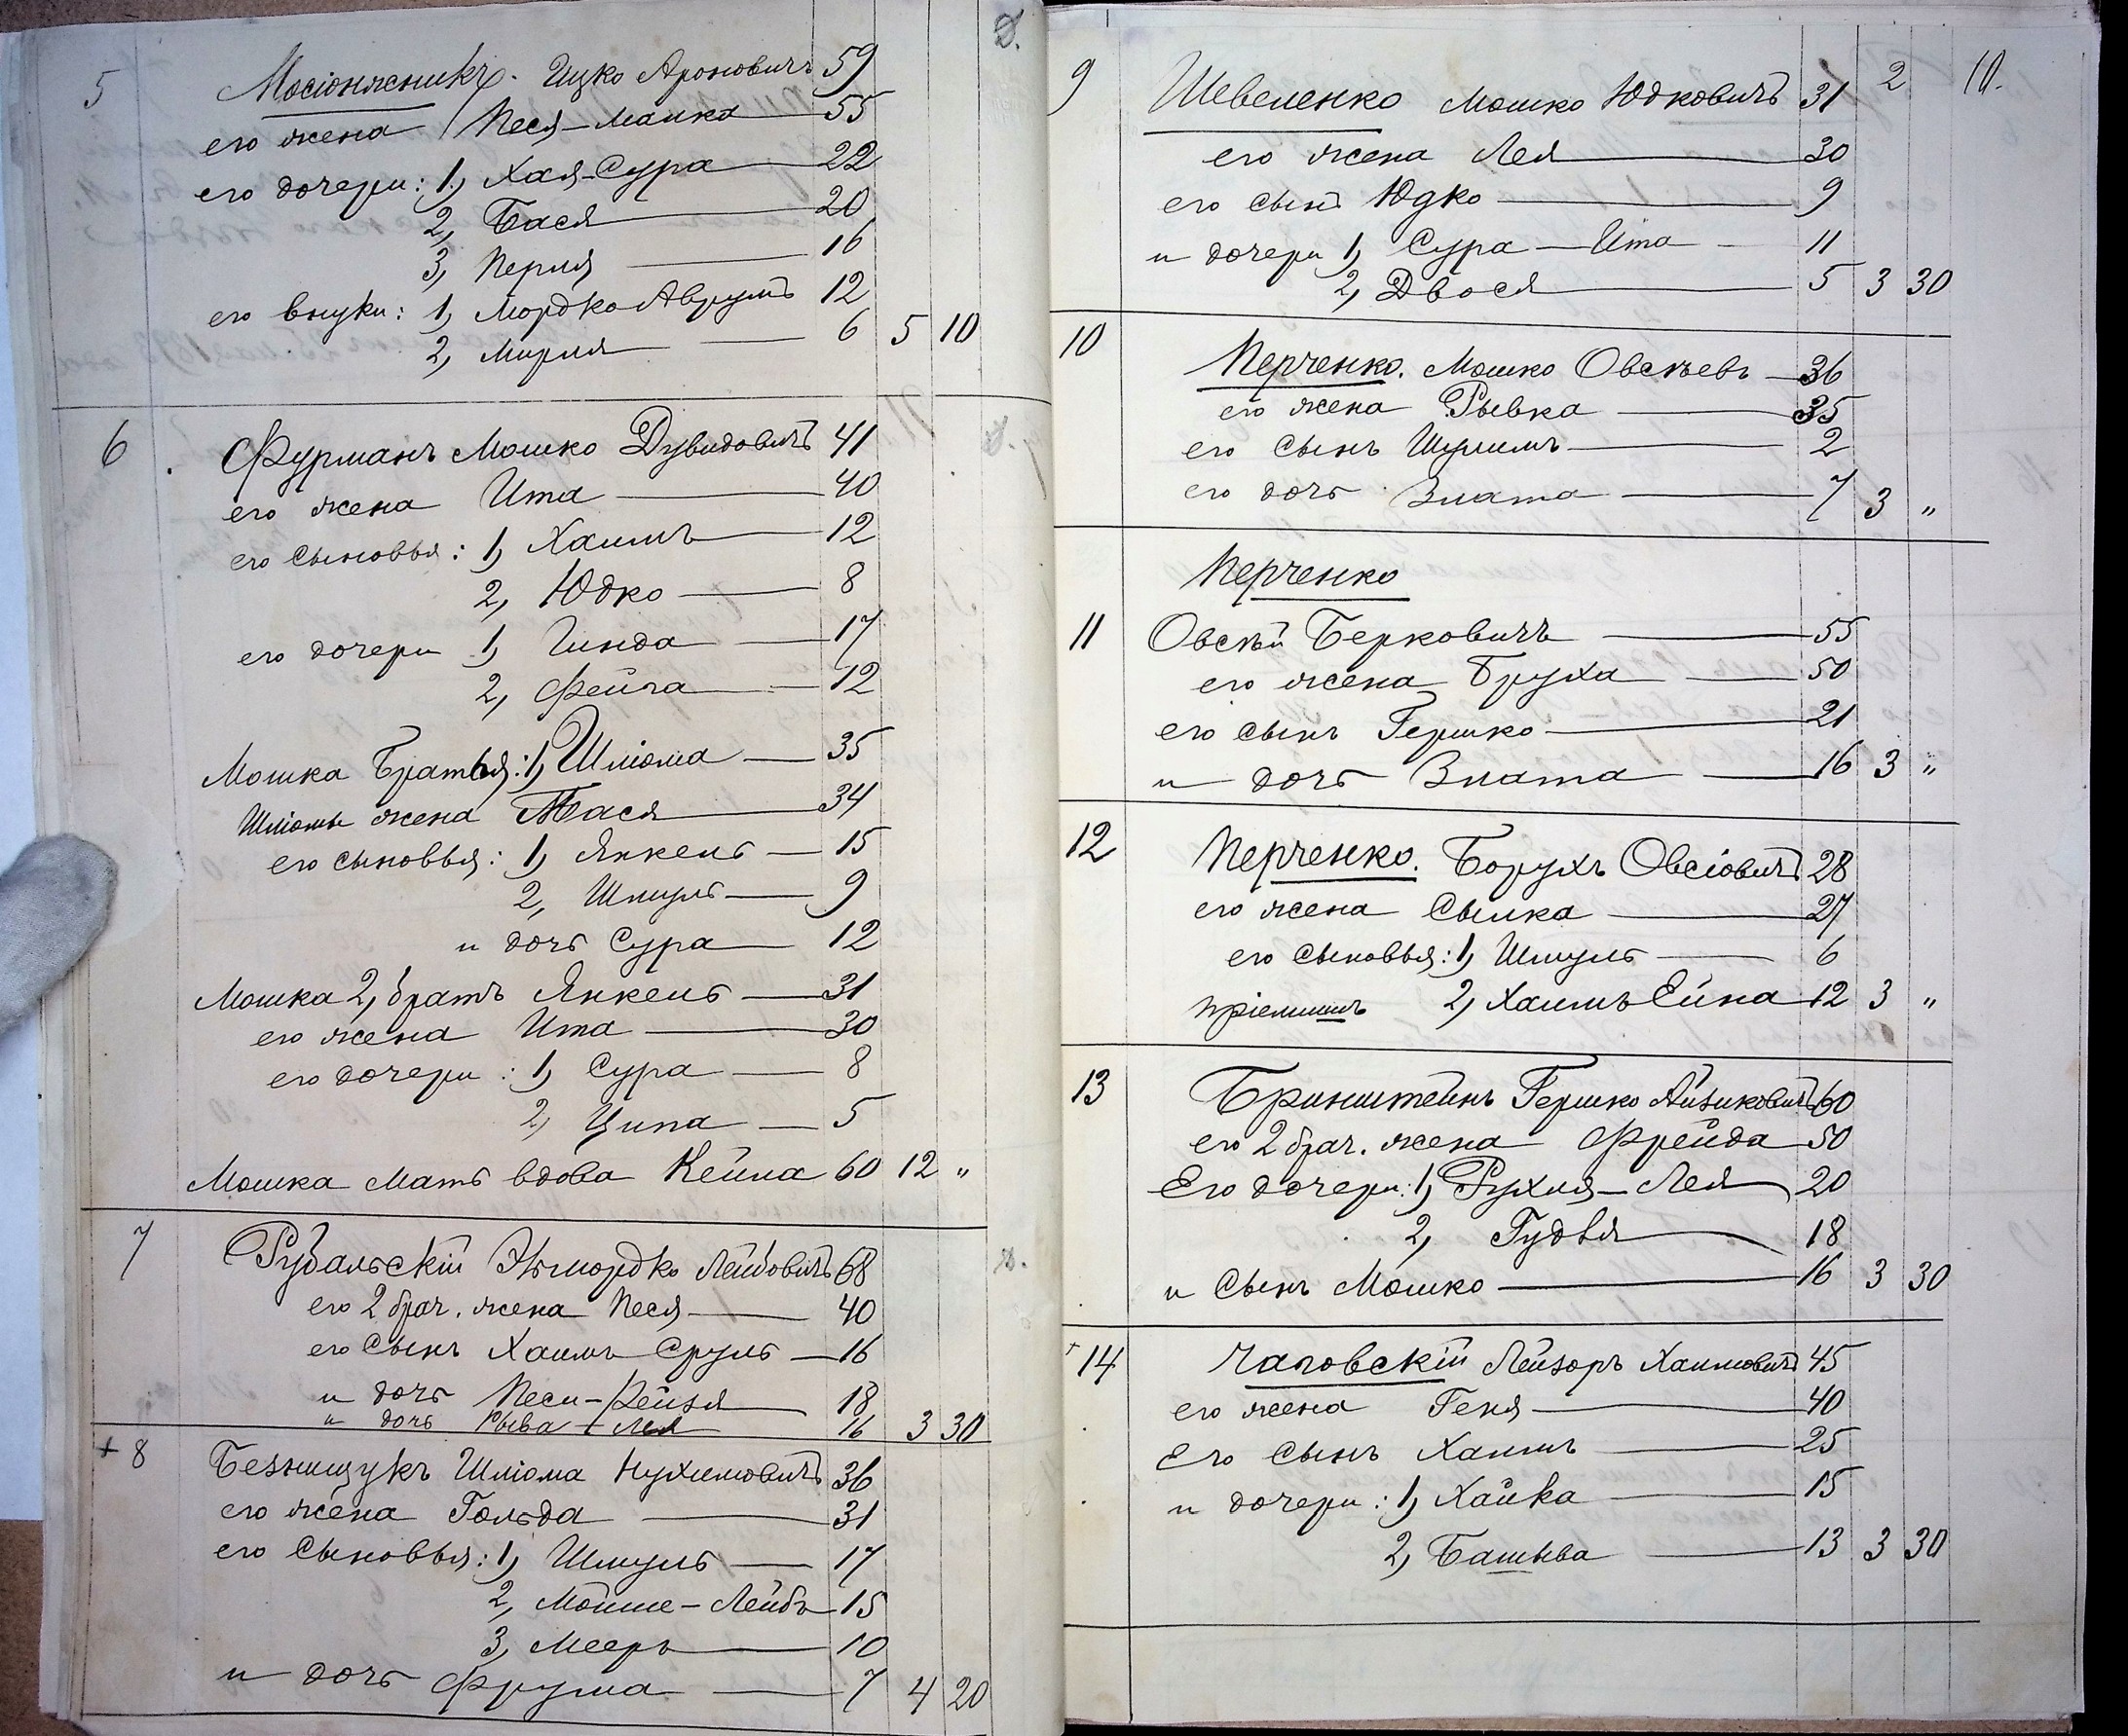 5 Мосіонжникъ. Ицко Ароновичъ 59
его жена Песя-Малка 55
его дочери: 1, Хая-Сура 22
2, Бася 20
3, Перля 16
его внуки: 1, Мордко Аврумъ 12
2, Мирля 6 5 10
6 Фурманъ Мошко Дувидовичъ 41
его жена Ита 40
его сыновья: 1, Хаимъ 12
2, Юдко 8
его дочери 1, Гинда 17
2, Фейга 12
Мошка Братья: 1, Шліома 35
Шліомы жена Тася 34
его сыновья: 1, Янкель 15
2, Шмуль 9
и дочь Сура 12
Мошка 2, братъ Янкель 31
его жена Ита 30
его дочери: 1, Сура 8
2, Ципа 5
Мошка мать вдова Кейла 60 12 "
7 Рубальскій Мордко Лейбовичъ 68
его 2 брач. жена Песя 40
его сынъ Хаимъ Сруль 16
и дочь Песи-Рейзя 18
и дочь Рыва-Лея 16 3 30
+ 8 Безнищукъ Шліома Нухимовичъ 36
его жена Гольда 31
его сыновья: 1, Шмуль 17
2, Мойше-Лейбъ 15
3, Мееръ 10
и дочь Фрума 7 4 20
2 10.
9 Шевеленко Мошко Юдковичъ 31
его жена Лея 30
его сынъ Юдко 9
и дочери 1, Сура-Ита 11
2, Двося 5 3 30
10 Перченко. Мошко Овсѣевъ 36
его жена Рывка 35
его сынъ 2
его дочь Злата 7 3 "
Перченко
11 Овсѣй Берковичъ 55
его жена Бруха 50
его сынъ Гершко 21
и дочь Злата 16 3 "
12 Перченко. Борухъ Овсіовичъ 28
его жена Сылка 27
его сыновья: 1, Шмуль 6
пріемышъ 2, Хаимъ Ейна 12 3 "
13 Бринштейнъ Гершко Айзиковичъ 60
его 2 брач. жена Фрейда 50
Его дочери: 1, Рухля-Лея 20
2, Гудля 18
и сынъ Мошко 16 3 30
+ 14 Чаповскій Лейзоръ Хаимовичъ 45
его жена Геня 40
Его сынъ Хаимъ 25
и дочери: 1, Хайка 15
2, Башыва 13 3 30